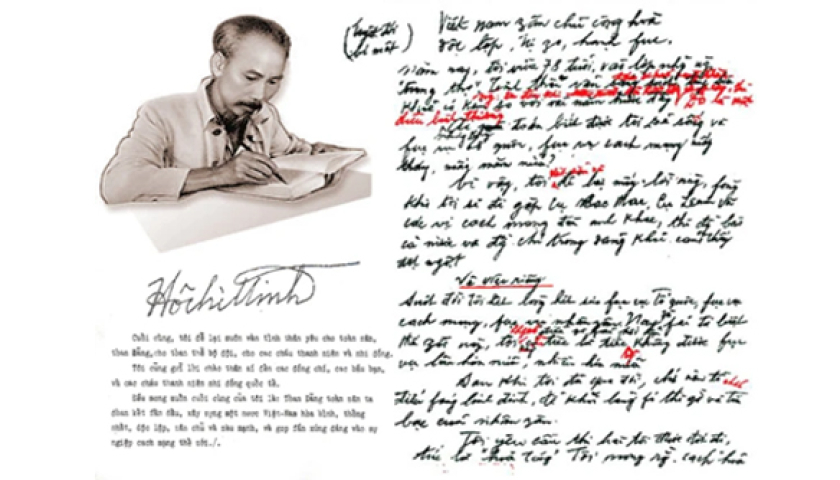 (tuyệt đối
bí mật)
Việt nam zân chủ cộng hoà
độc lập, tự zo, hạnh fúc.
Năm nay, tôi vừa 78 tuổi, vào lớp những
trung thọ. Tinh thần vẫn
điều bình thường
toàn biết được tôi còn sống và
fục vụ tổ quốc, fục vụ cách mạng mấy
tháng, mấy năm nữa?
Vì vậy, tôi để lại mấy lời này, fòng
khi tôi sẽ đi gặp cụ Các Mác, cụ Lênin và
các vị cách mạng đàn anh khác, thì đồng bào
cả nước và đồng chí trong đảng khỏi cảm thấy
đột ngột.
Về việc riêng
Suốt đời tôi hết lòng hết sức fục vụ tổ quốc, fục vụ
cách mạng, fục vụ nhân zân. Nay zù fải từ biệt
thế zới này, tôi không có điều gì fải hối hận, chỉ
tiếc là tiếc không được fục
vụ lâu hơn nữa, nhiều hơn nữa.
Sau khi tôi đã qua đời, chớ nên tổ chức
điếu fúng linh đình, để khỏi lãng fí thì giờ và tiền
bạc của nhân zân.
Tôi yêu cầu thi hài tôi được đốt đi,
tức là "hoả táng". Tôi mong rằng cách hoả
Hồ Chí Minh
Cuối cùng, tôi để lại muôn vàn tình thân yêu cho toàn dân,
toàn Đảng,cho toàn thể bộ đội, cho các cháu thanh niên và nhi đồng.
Tôi cũng gửi lời chào thân ái đến các đồng chí, các bầu bạn,
và các cháu thanh niên nhi đồng quốc tế.
Điều mong muốn cuối cùng của tôi là: Toàn Đảng toàn dân ta
đoàn kết phấn đấu, xây dựng một nước Việt-Nam hoà bình, thống
nhất, độc lập, dân chủ và giàu mạnh, và góp phần xứng đáng vào sự
nghiệp cách mạng thế giới./.